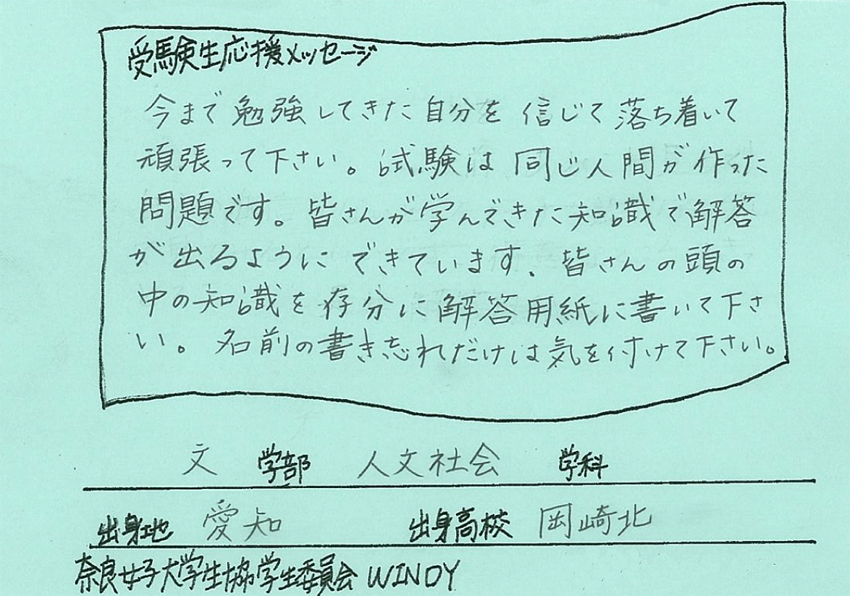 受験生応援メッセージ
今まで勉強してきた自分を信じて落ち着いて
頑張って下さい。試験は同じ人間が作った
問題です。皆さんが学んできた知識で解答
が出るようにできています。皆さんの頭の
中の知識を存分に解答用紙に書いて下さ
い。名前の書き忘れだけは気を付けて下さい。
文 学部 人文社会 学科
出身地 愛知 出身高校 岡崎北
奈良女子大学生協学生委員会 WINDY